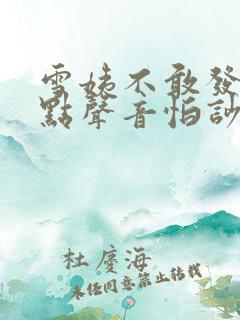 雪姨不敢發
點聲音怕訬
杜慶海
未经同意禁止转载